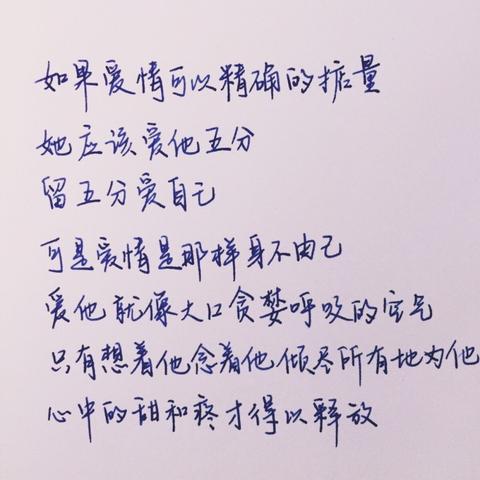 如果爱情可以精确的掂量
她应该爱他五分
留五分爱自己
可是爱情是那样身不由己
爱他就像大口贪婪呼吸的空气
只有想着他念着他倾尽所有地为他
心中的甜和疼才得以释放